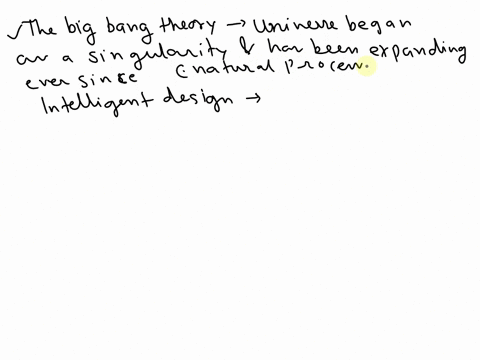 ✓The big bang theory → Universe began
as a singularity & has been expanding
ever since (natural process.
Intelligent design →